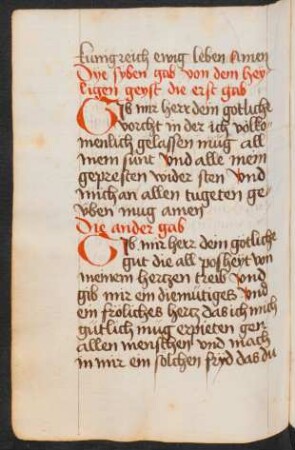 kunigreich ewig leben Amen
Dye syben gab von dem hey
ligen geyst die erst gab
Gib mir herr dem götliche
vorcht in der ich volko
menlich gelassen mug all
mein sunt Und alle mein
gepresten wider sten Und
mich an allen tugeten ge
vben mug amen
Die ander gab
Gib mir herr dein götliche
gut die all posheyt von
meinem hertzen treib Und
gib mir ein diemütigets Und
ein fröliches hertz das ich mich
gutlich mug erpieten gen
allen menschen Und mach
in mir ein solchen fryd das du